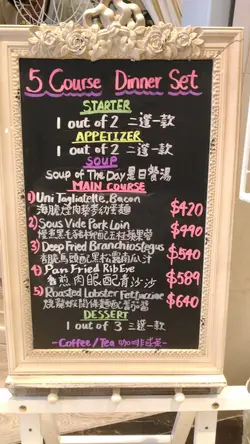 5 Course Dinner Set
STARTER
1 out of 2 二選一款
APPETIZER
1 out of 2 二選一款
SOUP
Soup of The Day 是日餐湯
MAIN COURSE
1) Uni Tagliatelle, Bacon
$420
2) Sous Vide Pork Loin
$490
3) Deep Fried Branchiostegus
$540
4) Pan Fried Rib Eye
香煎肉眼配青沙沙
$589
5) Roasted Lobster Fettuccine
$640
DESSERT
1 out of 3 三選一款
~Coffee/Tea 咖啡或茶~